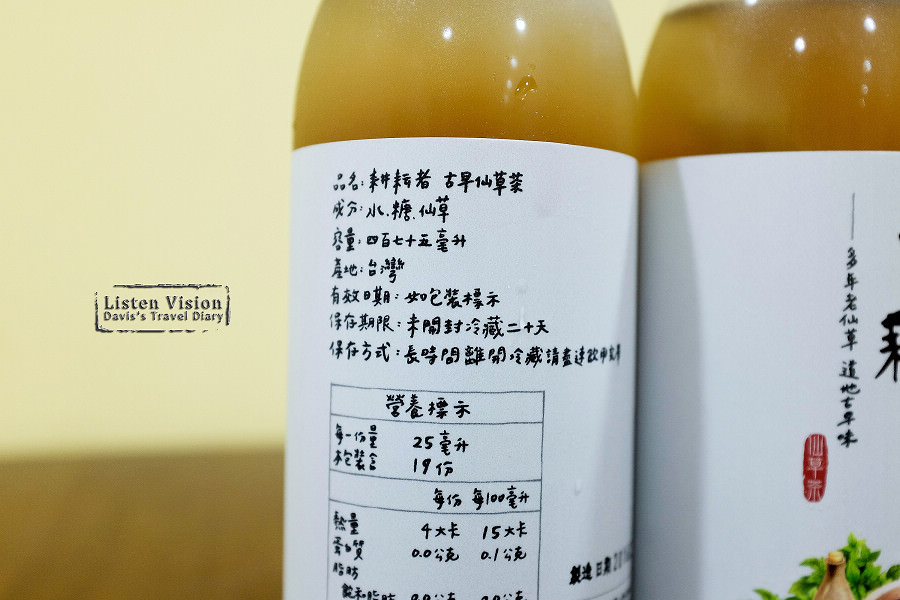 Listen Vision
Davis's Travel Diary
品名:耕耘者 古早仙草茶
成分:水.糖.仙草
容量:四百七十五毫升
產地:台灣
有效日期:如包裝標示
保存期限:未開封冷藏二十天
保存方式:長時間離開冷藏請盡速飲用完畢
營養標示
每一份量 25毫升
本包裝含 19份
每份 每100毫升
熱量 4大卡 15大卡
蛋白質 0.0公克 0.1公克
脂肪
飽和脂肪
製造日期
多年老仙草 道地古早味
仙草茶